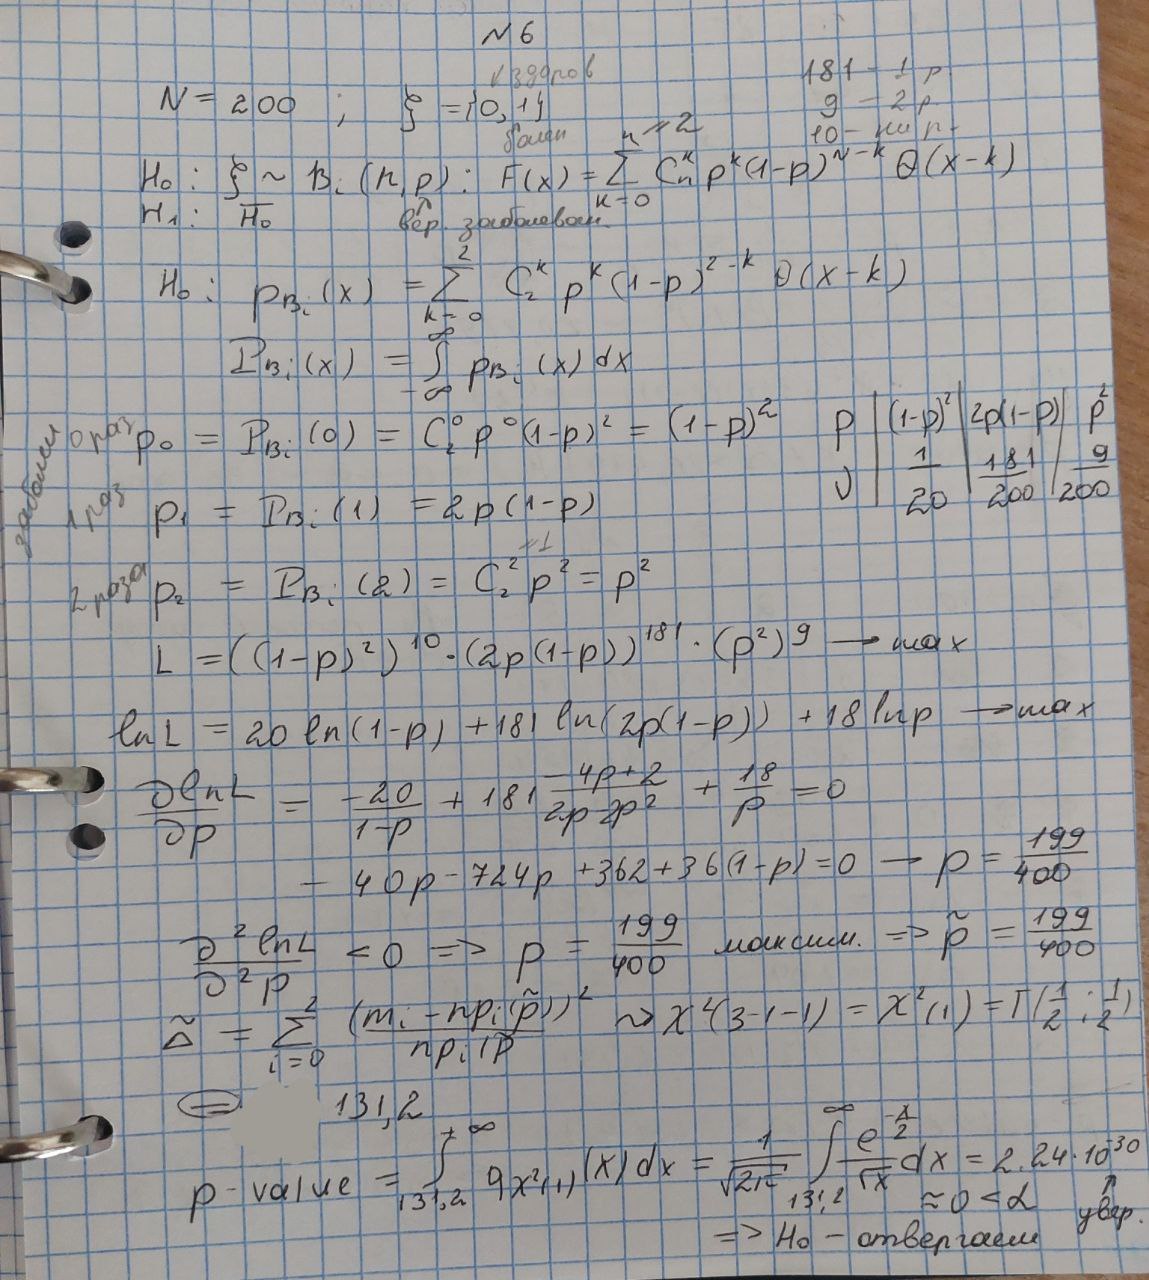 №6
N = 200 ; ξ = {0,1}
здоров
болен
181 - 1 р
9 - 2 р.
10 - ни р.
n = 2
H₀ : ξ ~ Bi (n,p) : F(x) = ∑ₖ₌₀ⁿ Cₙᵏ pᵏ(1-p)ⁿ⁻ᵏ θ(x-k)
H₁ : H̅₀
вер. заболеван.
H₀ : p_Bi (x) = ∑ₖ₌₀² C₂ᵏ pᵏ (1-p)²⁻ᵏ θ(x-k)
P_Bi (x) = ∫_{-∞}^{∞} p_Bi (x) dx
заболели
0 раз p₀ = P_Bi (0) = C₂⁰ p⁰(1-p)² = (1-p)²
p | (1-p)² | 2p(1-p) | p²
ν | 1/20 | 181/200 | 9/200
1 раз p₁ = P_Bi (1) = 2p(1-p)
=1
2 раза p₂ = P_Bi (2) = C₂² p² = p²
L = ((1-p)²)¹⁰ · (2p(1-p))¹⁸¹ · (p²)⁹ → max
ln L = 20 ln(1-p) + 181 ln(2p(1-p)) + 18 ln p → max
∂lnL/∂p = -20/(1-p) + 181 (-4p+2)/(2p-2p²) + 18/p = 0
- 40p - 724p + 362 + 36(1-p) = 0 → p = 199/400
∂²lnL/∂²p < 0 => p = 199/400 максим. => p̃ = 199/400
Δ̃ = ∑ᵢ₌₀² (mᵢ - npᵢ(p̃))²/npᵢ(p̃ ~> χ²(3-1-1) = χ²(1) = Γ(1/2 ; 1/2)
= 131,2
p-value = ∫_{131,2}^{+∞} q_χ²(1) (x) dx = 1/√2π ∫_{131,2}^{∞} e^{-x/2}/√x dx = 2.24·10⁻³⁰
≈ 0 < α
увер.
=> H₀ - отвергаем